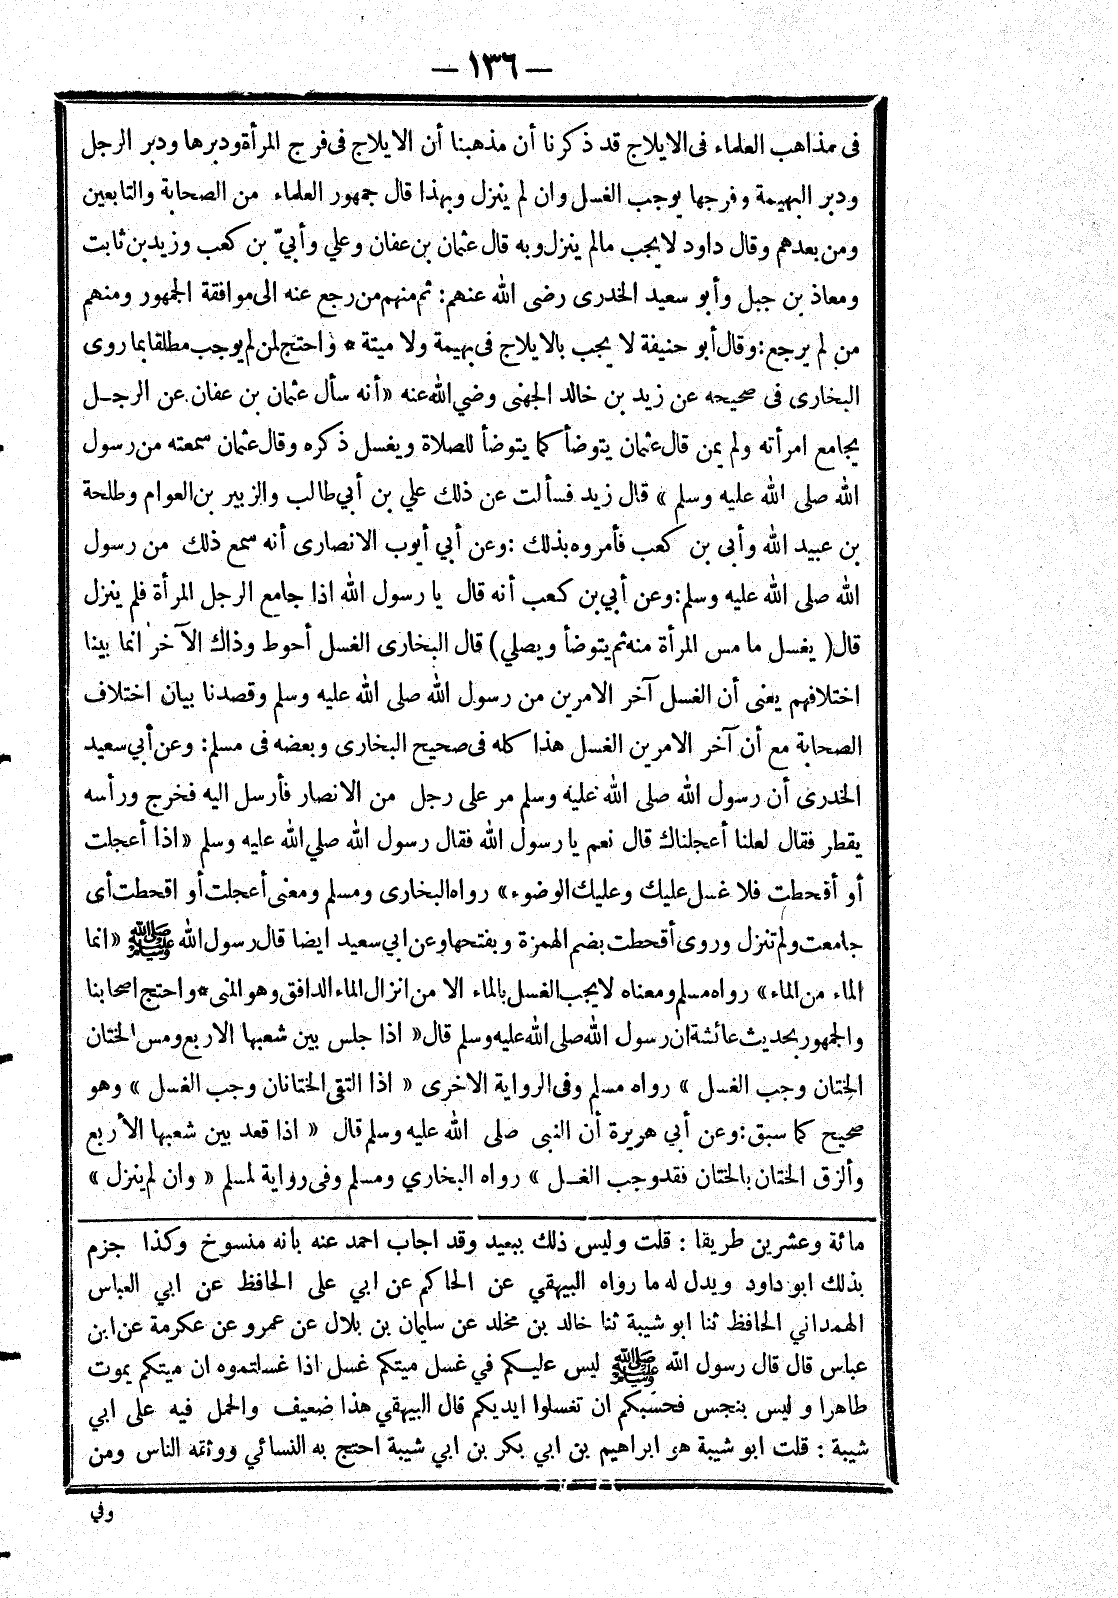 — ١٣٦ —
فى مذاهب العلماء فى الايلاج قد ذكرنا أن مذهبنا أن الايلاج فى فرج المرأة ودبرها ودبر الرجل
ودبر البهيمة وفرجها يوجب الغسل وان لم ينزل وبهذا قال جمهور العلماء من الصحابة والتابعين
ومن بعدهم وقال داود لا يجب مالم ينزل وبه قال عثمان بن عفان وعلي وأبيّ بن كعب وزيد بن ثابت
ومعاذ بن جبل وأبو سعيد الخدرى رضى الله عنهم: ثم منهم من رجع عنه الى موافقة الجمهور ومنهم
من لم يرجع: وقال أبو حنيفة لا يجب بالايلاج فى بهيمة ولا ميتة * واحتج لمن لم يوجب مطلقا بما روى
البخارى فى صحيحه عن زيد بن خالد الجهنى وضي الله عنه «أنه سأل عثمان بن عفان عن الرجـل
يجامع امرأته ولم يمن قال عثمان يتوضأ كما يتوضأ للصلاة ويغسل ذكره وقال عثمان سمعته من رسول
الله صلى الله عليه وسلم » قال زيد فسألت عن ذلك علي بن أبي طالب والزبير بن العوام وطلحة
بن عبيد الله وأبى بن كعب فأمروه بذلك : وعن أبي أيوب الانصارى أنه سمع ذلك من رسول
الله صلى الله عليه وسلم: وعن أبي بن كعب أنه قال يا رسول الله اذا جامع الرجل المرأة فلم ينزل
قال( يغسل ما مس المرأة منه ثم يتوضأ ويصلي) قال البخارى الغسل أحوط وذاك الآخر انما بينا
اختلافهم يعنى أن الغسل آخر الامرين من رسول الله صلى الله عليه وسلم وقصدنا بيان اختلاف
الصحابة مع أن آخر الامرين الغسل هذا كله فى صحيح البخارى وبعضه فى مسلم: وعن أبي سعيد
الخدرى أن رسول الله صلى الله عليه وسلم مر على رجل من الانصار فأرسل اليه فخرج ورأسه
يقطر فقال لعلنا أعجلناك قال نعم يا رسول الله فقال رسول الله صلي الله عليه وسلم «اذا أعجلت
أو أقحطت فلا غسل عليك وعليك الوضوء» رواه البخارى ومسلم ومعنى أعجلت أو اقحطت أى
جامعت ولم تنزل وروى أقحطت بضم الهمزة وبفتحها وعن ابي سعيد ايضا قال رسول الله ﷺ «انما
الماء من الماء» رواه مسلم ومعناه لا يجب الغسل بالماء الا من انزال الماء الدافق وهو المنى * واحتج اصحابنا
والجمهور بحديث عائشة ان رسول الله صلى الله عليه وسلم قال« اذا جلس بين شعبها الاربع ومس الختان
الختان وجب الغسل » رواه مسلم وفى الرواية الاخرى « اذا التقى الختانان وجب الغسل » وهو
صحيح كما سبق: وعن أبي هريرة أن النبى صلى الله عليه وسلم قال « اذا قعد بين شعبها الأربع
وألزق الختان بالختان فقد وجب الغسـل » رواه البخاري ومسلم وفى رواية لمسلم « وان لم ينزل »
مائة وعشرين طريقا : قلت وليس ذلك ببعيد وقد اجاب احمد عنه بأنه منسوخ وكذا جزم
بذلك ابو داود ويدل له ما رواه البيهقي عن الحاكم عن ابي على الحافظ عن ابي العباس
الهمداني الحافظ ثنا ابو شيبة ثنا خالد بن مخلد عن سليمان بن بلال عن عمرو عن عكرمة عن ابن
عباس قال قال رسول الله ﷺ ليس عليـكم في غسل ميتكم غسل اذا غسلتموه ان ميتكم يموت
طاهرا و ليس بنجس فحسبكم ان تغسلوا ايديكم قال البيهقي هذا ضعيف والحمل فيه على ابي
شيبة : قلت ابو شيبة هو ابراهيم بن ابي بكر بن ابي شيبة احتج به النسائي ووثقه الناس ومن
وفي